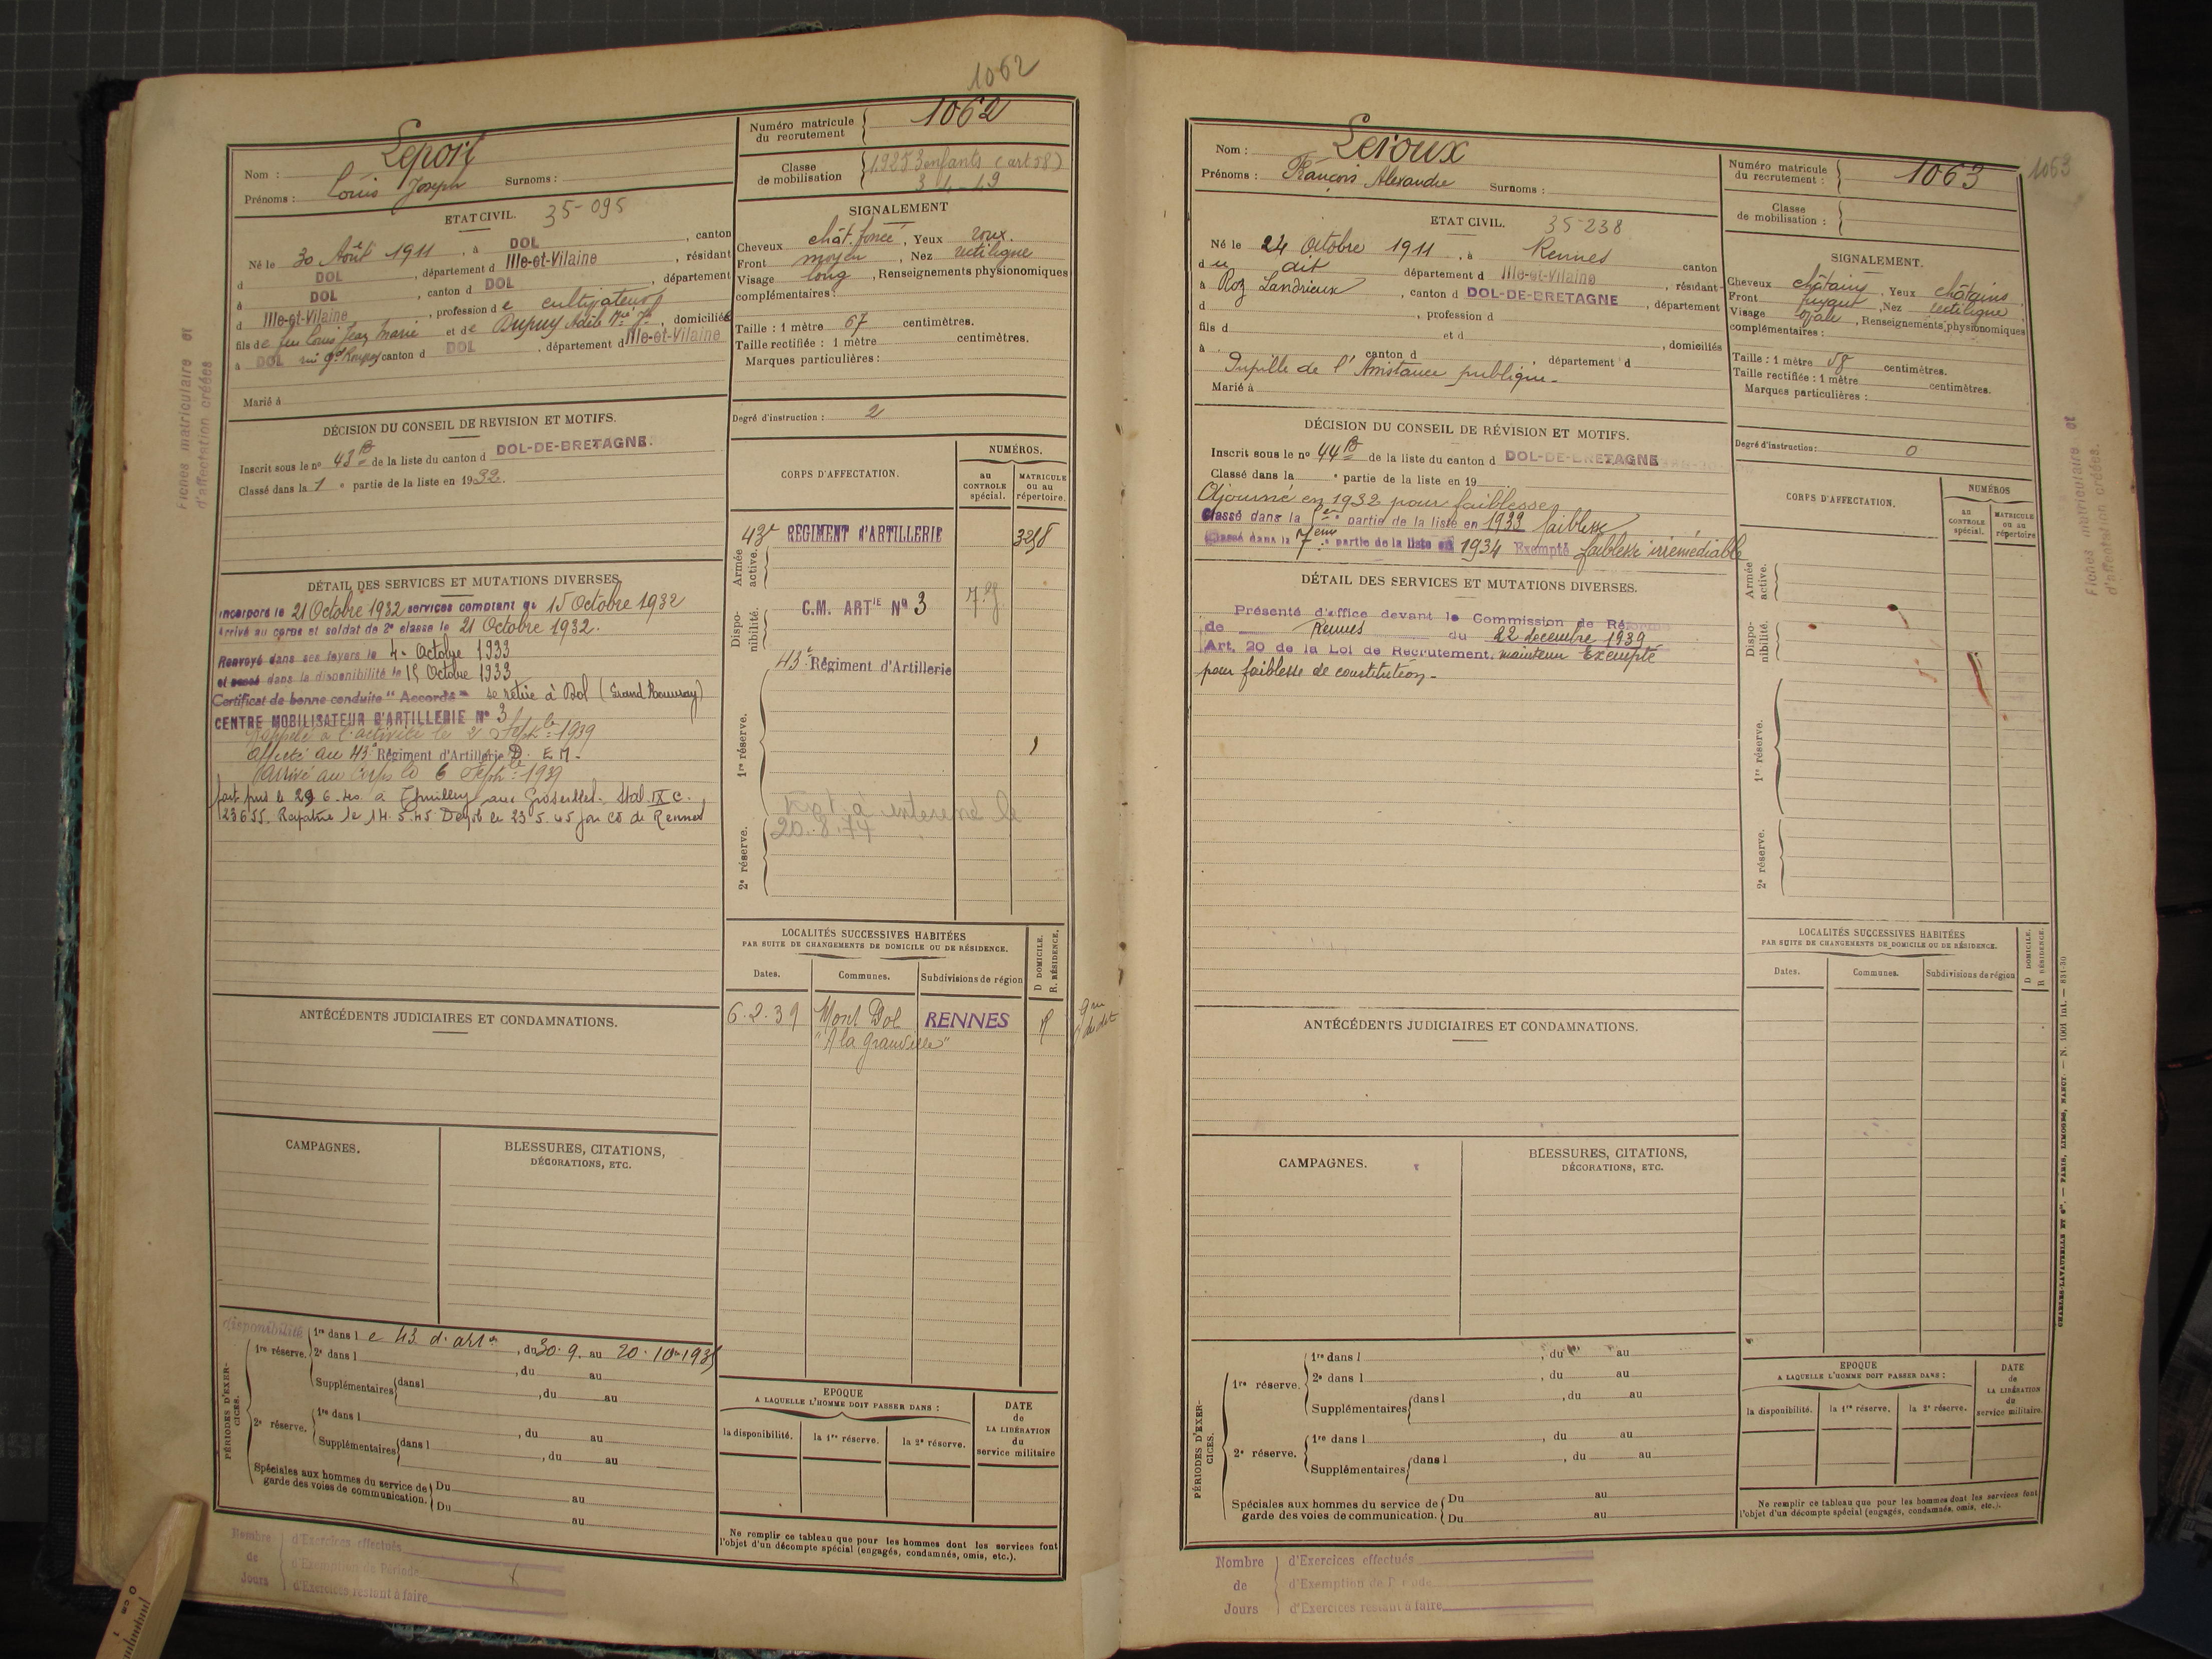 1062
Nom : Leport
Prénoms : Louis Joseph Surnoms :
Numéro matricule du recrutement 1062
Classe de mobilisation 1925 3 enfants (art 58)
3 4-49
ETAT CIVIL. 35-095
Né le 30 Août 1911, à DOL, canton
d DOL, département d Ille-et-Vilaine, résidant
à DOL, canton d DOL, département
d Ille-et-Vilaine, profession de cultivateur
fils de feu Louis Jean Marie et de Dupuy Adèle, domiciliés
à DOL canton d DOL, département d Ille-et-Vilaine
Marié à
SIGNALEMENT
Cheveux chât. foncé, Yeux roux.
Front moyen, Nez rectiligne
Visage long, Renseignements physionomiques
complémentaires :
Taille : 1 mètre 67 centimètres.
Taille rectifiée : 1 mètre centimètres.
Marques particulières :
Degré d'instruction : 2
DÉCISION DU CONSEIL DE REVISION ET MOTIFS.
Inscrit sous le nº 43 B de la liste du canton d DOL-DE-BRETAGNE.
Classé dans la 1 e partie de la liste en 1932.
CORPS D'AFFECTATION.
NUMÉROS.
au CONTROLE spécial.
MATRICULE ou au répertoire.
Armée active.
43e REGIMENT d'ARTILLERIE 3258
Disponibilité.
C.M. ARTIE Nº 3
43e Régiment d'Artillerie
1re réserve.
2e réserve.
20.8.74
DÉTAIL DES SERVICES ET MUTATIONS DIVERSES.
Incorporé le 21 Octobre 1932 services comptant du 15 Octobre 1932
Arrivé au corps et soldat de 2e classe le 21 Octobre 1932.
Renvoyé dans ses foyers le 4 Octobre 1933
et passé dans la disponibilité le 15 Octobre 1933
Certificat de bonne conduite "Accordé" se retire à Dol
CENTRE MOBILISATEUR D'ARTILLERIE Nº 3
Rappelé à l'activité le 2 Septbre 1939
Affecté au 43e Régiment d'Artillerie D. EM.
Arrivé au Corps le 6 Septbre 1939
fait pris le 29 6.40 à Thuilley aux Groseilles. Stal. IX C.
23655. Rapatrié le 14.5.45 Démob le 23 5.45 par CD de Rennes
LOCALITÉS SUCCESSIVES HABITÉES
PAR SUITE DE CHANGEMENTS DE DOMICILE OU DE RÉSIDENCE.
D. DOMICILE.
R. RÉSIDENCE.
Dates. Communes. Subdivisions de région
6.2.39 Mont Dol RENNES R
ANTÉCÉDENTS JUDICIAIRES ET CONDAMNATIONS.
CAMPAGNES.
BLESSURES, CITATIONS,
DÉCORATIONS, ETC.
PÉRIODES D'EXERCICES.
disponibilité
1re réserve. 1re dans le 43 d'artie, du 30.9. au 20.10 1935
2e dans l , du au
Supplémentaires dans l , du au
2e réserve. 1re dans l , du au
Supplémentaires dans l , du au
Spéciales aux hommes du service de garde des voies de communication. Du au
Du au
EPOQUE
A LAQUELLE L'HOMME DOIT PASSER DANS :
la disponibilité. la 1re réserve. la 2e réserve.
DATE de LA LIBÉRATION du service militaire
Ne remplir ce tableau que pour les hommes dont les services font
l'objet d'un décompte spécial (engagés, condamnés, omis, etc.).
Nombre de Jours
d'Exercices effectués
d'Exemption de Période
d'Exercices restant à faire
Fiches matriculaire et
d'affectation créées
1063
Nom : Leroux
Prénoms : François Alexandre Surnoms :
Numéro matricule du recrutement : 1063
Classe de mobilisation :
ETAT CIVIL. 35-238
Né le 24 Octobre 1911, à Rennes canton
du dit département d Ille-et-Vilaine, résidant
à Roz Landrieux, canton d DOL-DE-BRETAGNE, département
d , profession d
fils d et d , domiciliés
à canton d , département d
Pupille de l'Assistance publique.
Marié à
SIGNALEMENT.
Cheveux châtains, Yeux châtains,
Front fuyant, Nez rectiligne
Visage ovale, Renseignements physionomiques
complémentaires :
Taille : 1 mètre 58 centimètres.
Taille rectifiée : 1 mètre centimètres.
Marques particulières :
Degré d'instruction : 0
DÉCISION DU CONSEIL DE RÉVISION ET MOTIFS.
Inscrit sous le nº 44 B de la liste du canton d DOL-DE-BRETAGNE
Classé dans la e partie de la liste en 19
Ajourné en 1932 pour faiblesse
Classé dans la partie de la liste en 1933 faiblesse
Classé dans la partie de la liste en 1934 Exempté faiblesse irrémédiable
CORPS D'AFFECTATION.
NUMÉROS
au CONTROLE spécial.
MATRICULE ou au répertoire
Armée active.
Disponibilité.
1re réserve.
2e réserve.
DÉTAIL DES SERVICES ET MUTATIONS DIVERSES.
Présenté d'office devant la Commission de Réforme
de Rennes du 22 décembre 1939
Art. 20 de la Loi de Recrutement. maintenu Exempté
pour faiblesse de constitution.
LOCALITÉS SUCCESSIVES HABITÉES
PAR SUITE DE CHANGEMENTS DE DOMICILE OU DE RÉSIDENCE.
D DOMICILE.
R RÉSIDENCE.
Dates. Communes. Subdivisions de région
ANTÉCÉDENTS JUDICIAIRES ET CONDAMNATIONS.
CAMPAGNES.
BLESSURES, CITATIONS,
DÉCORATIONS, ETC.
PÉRIODES D'EXERCICES.
1re réserve. 1re dans l , du au
2e dans l , du au
Supplémentaires dans l , du au
2e réserve. 1re dans l , du au
Supplémentaires dans l , du au
Spéciales aux hommes du service de garde des voies de communication. Du au
Du au
EPOQUE
A LAQUELLE L'HOMME DOIT PASSER DANS :
la disponibilité. la 1re réserve. la 2e réserve.
DATE de LA LIBÉRATION du service militaire.
Ne remplir ce tableau que pour les hommes dont les services font
l'objet d'un décompte spécial (engagés, condamnés, omis, etc.).
Nombre de Jours
d'Exercices effectués
d'Exemption de Période
d'Exercices restant à faire
Fiches matriculaire et
d'affectation créées.
CHARLES-LAVAUZELLE ET Cie. — PARIS, LIMOGES, NANCY. — N. 1001 int. — 831-30
0 cm 1